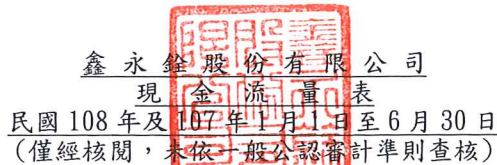 鑫永銓股份有限公司
現金流量表
民國 108 年及 107 年 1 月 1 日至 6 月 30 日
(僅經核閱，未依一般公認審計準則查核)